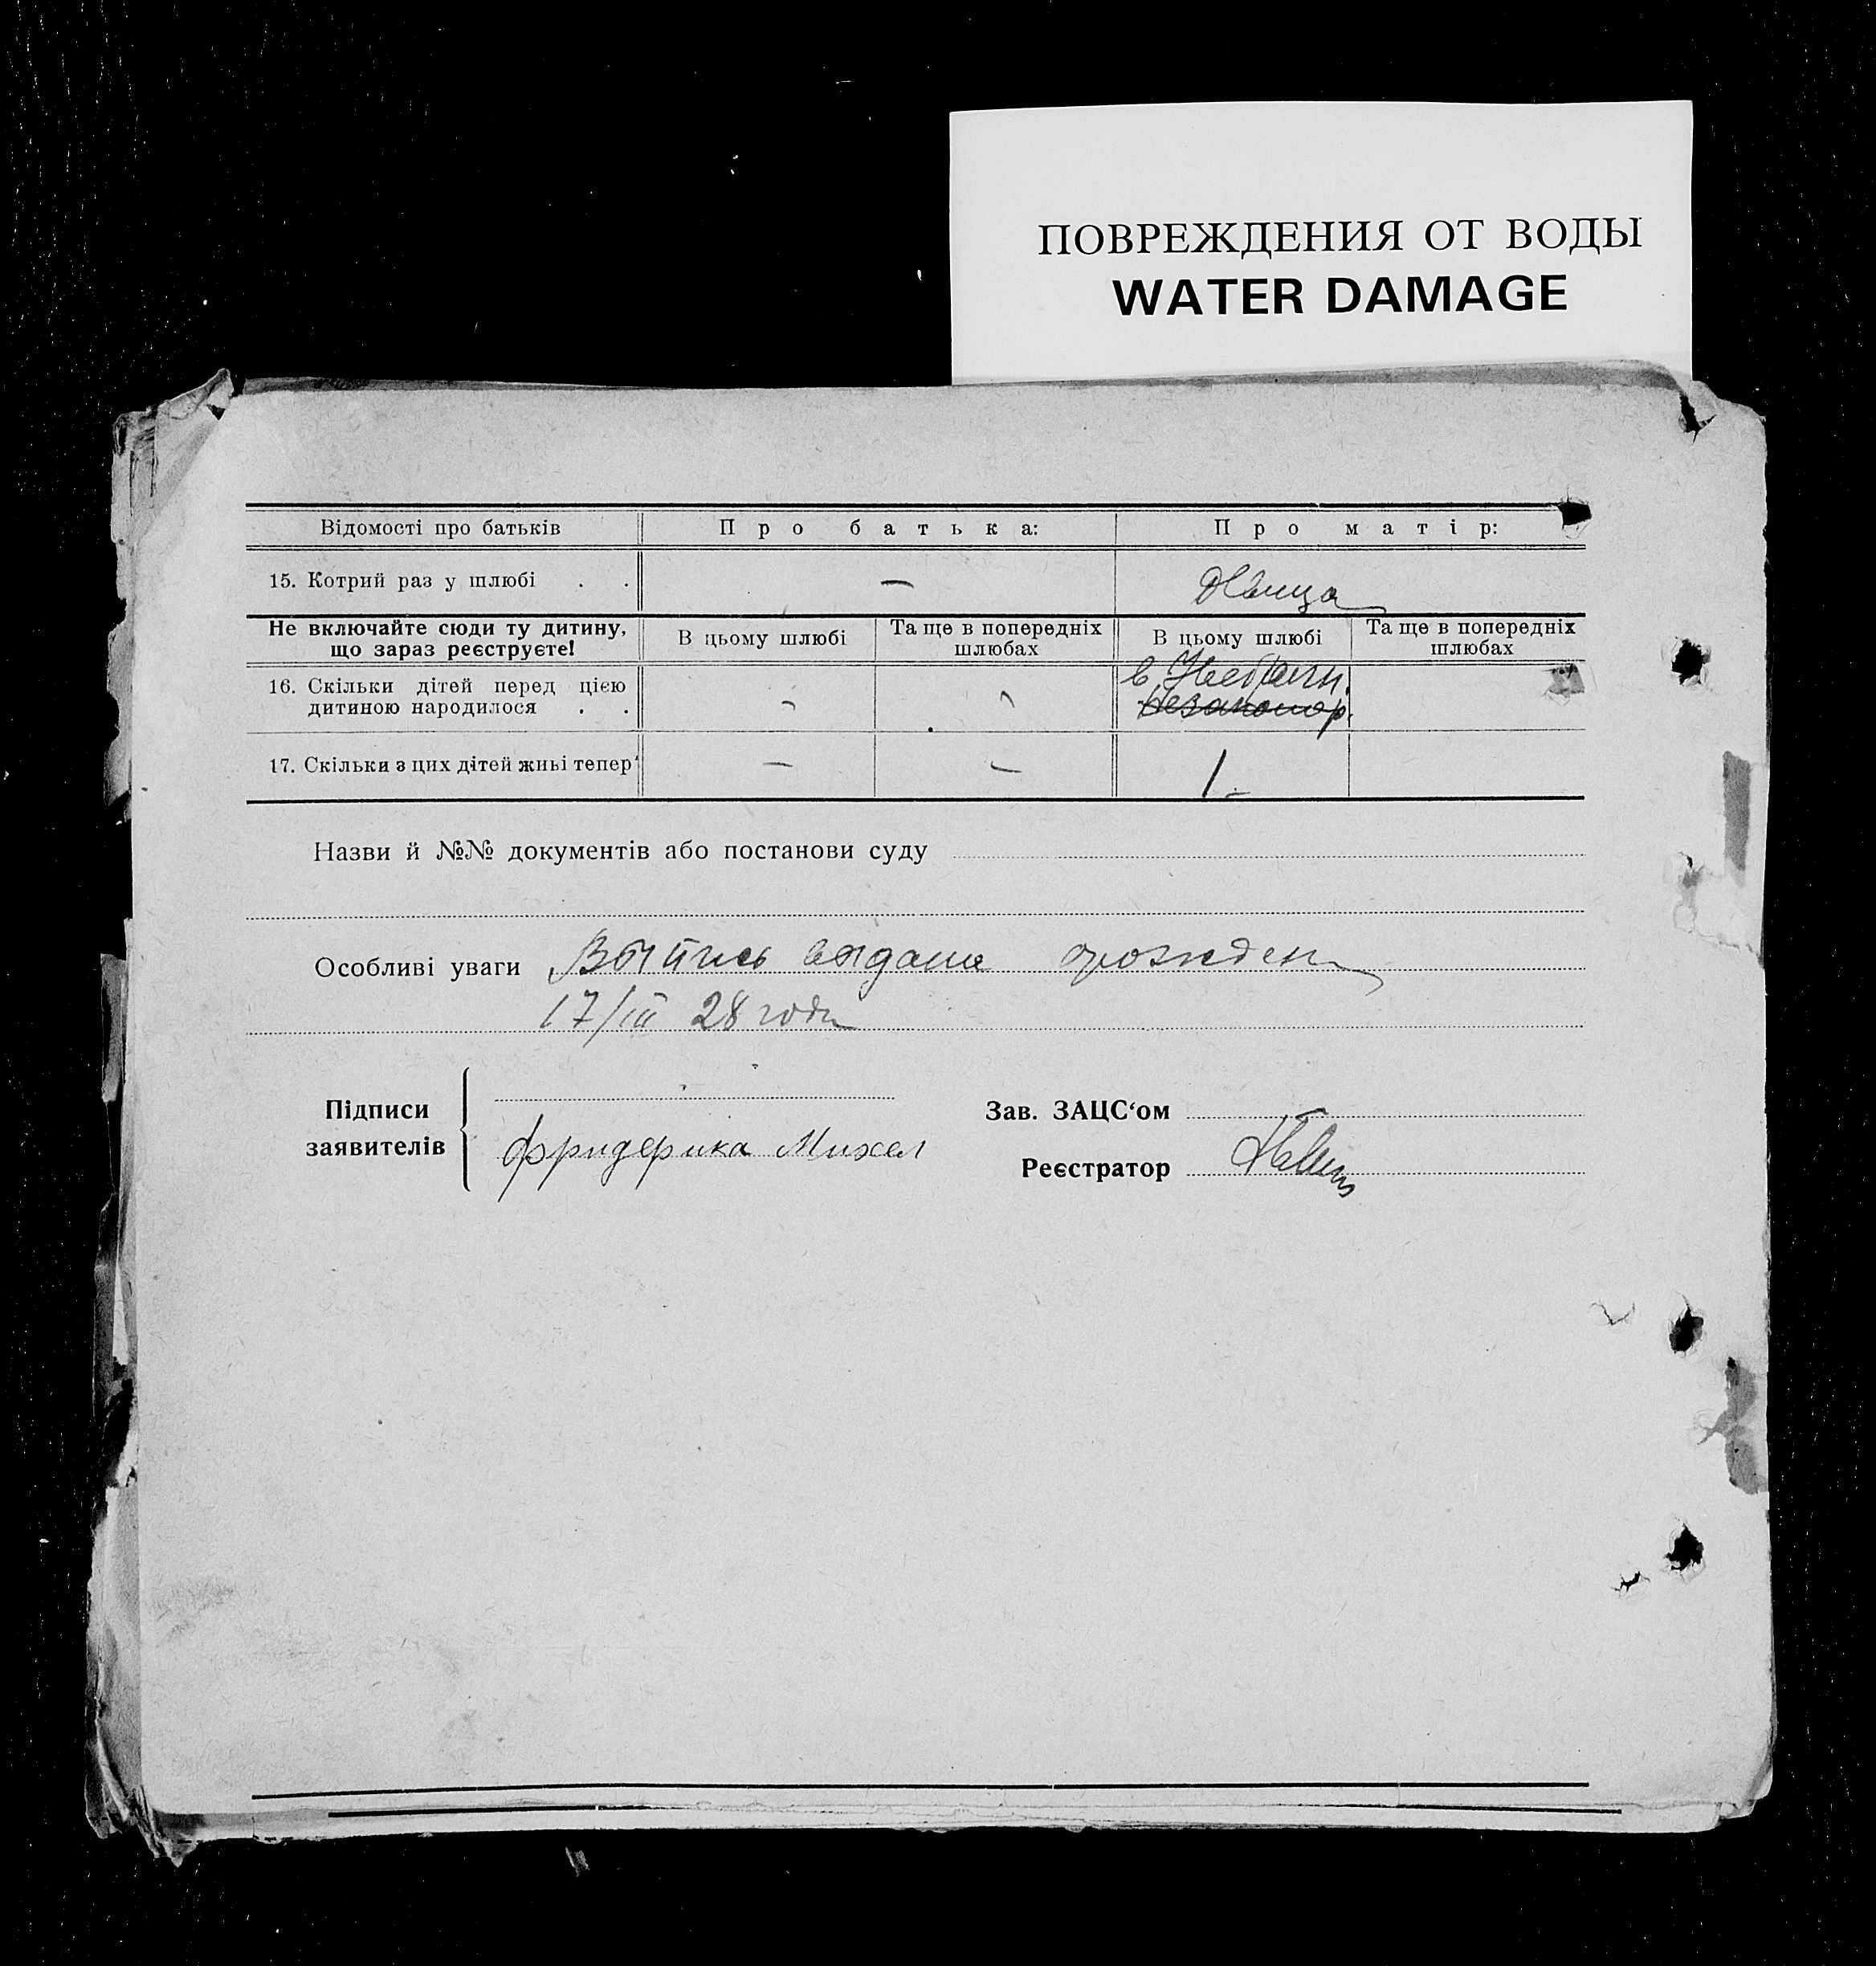 ПОВРЕЖДЕНИЯ ОТ ВОДЫ
WATER DAMAGE
Відомості про батьків Про батька: Про матір:
15. Котрий раз у шлюбі . . — Двица
Не включайте сюди ту дитину, що зараз реєструєте!
В цьому шлюбі
Та ще в попередніх шлюбах
В цьому шлюбі
Та ще в попередніх шлюбах
16. Скільки дітей перед цією
дитиною народилося . .
в
незаконор.
17. Скільки з цих дітей живі тепер — — 1 -
Назви й №№ документів або постанови суду
Особливі уваги Выпись выдана
17/III 28 года
Підписи
заявителів
Фридерика Михел
Зав. ЗАЦС‘ом
Реєстратор